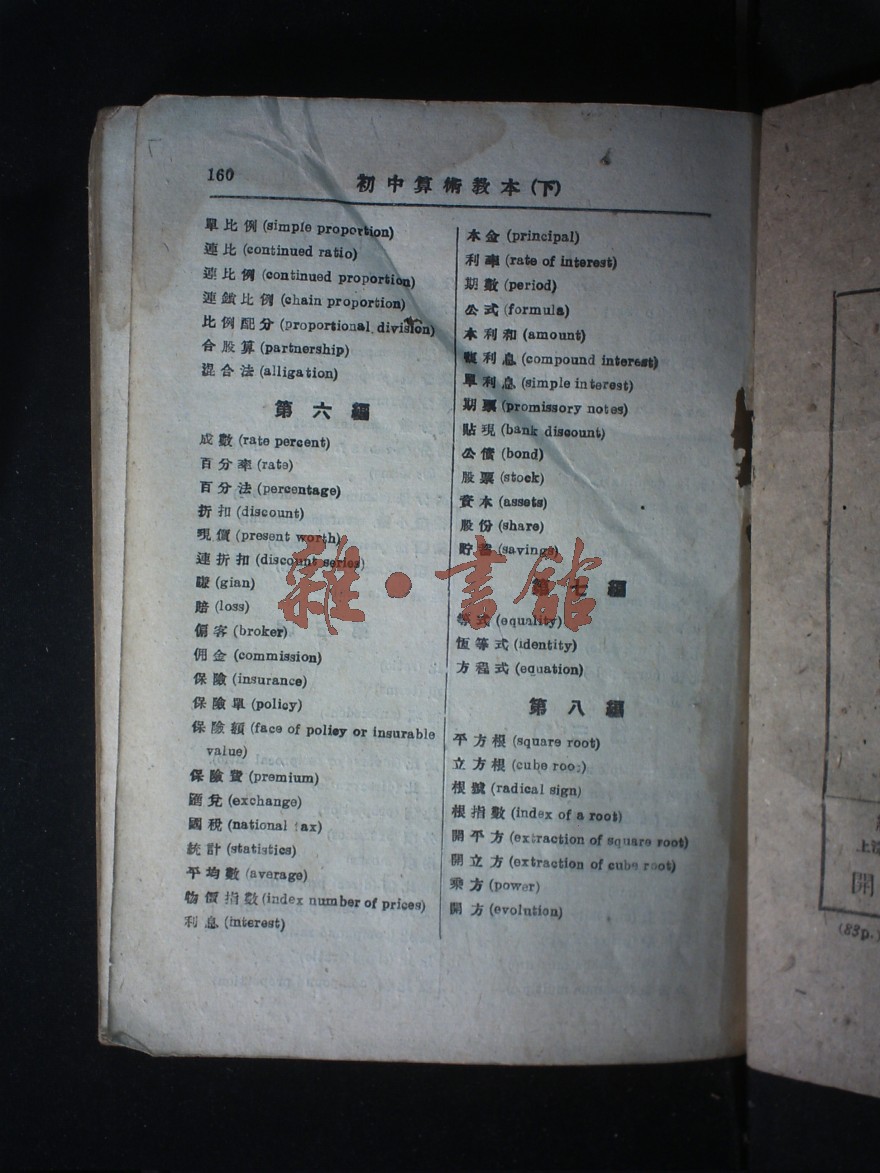 160
初中算術教本(下)
單比例 (simple proportion)
連比 (continued ratio)
連比例 (continued proportion)
連鎖比例 (chain proportion)
比例配分 (proportional division)
合股算 (partnership)
混合法 (alligation)
第六編
成數 (rate percent)
百分率 (rate)
百分法 (percentage)
折扣 (discount)
現價 (present worth)
連折扣 (discount series)
賺 (gian)
賠 (loss)
傭客 (broker)
佣金 (commission)
保險 (insurance)
保險單 (policy)
保險額 (face of policy or insurable
value)
保險費 (premium)
匯兌 (exchange)
國稅 (national tax)
統計 (statistics)
平均數 (average)
物價指數 (index number of prices)
利息 (interest)
本金 (principal)
利率 (rate of interest)
期數 (period)
公式 (formula)
本利和 (amount)
複利息 (compound interest)
單利息 (simple interest)
期票 (promissory notes)
貼現 (bank discount)
公債 (bond)
股票 (stock)
資本 (assets)
股份 (share)
貯蓄 (savings)
第七編
等式 (equality)
恆等式 (identity)
方程式 (equation)
第八編
平方根 (square root)
立方根 (cube root)
根號 (radical sign)
根指數 (index of a root)
開平方 (extraction of square root)
開立方 (extraction of cube root)
乘方 (power)
開方 (evolution)
雜·書館
開
(83p.)